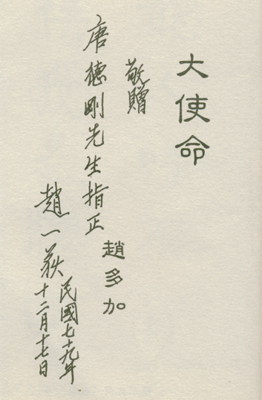 大使命
敬贈
唐德剛先生指正
趙多加
趙一荻
民國七十九年
十二月十七日